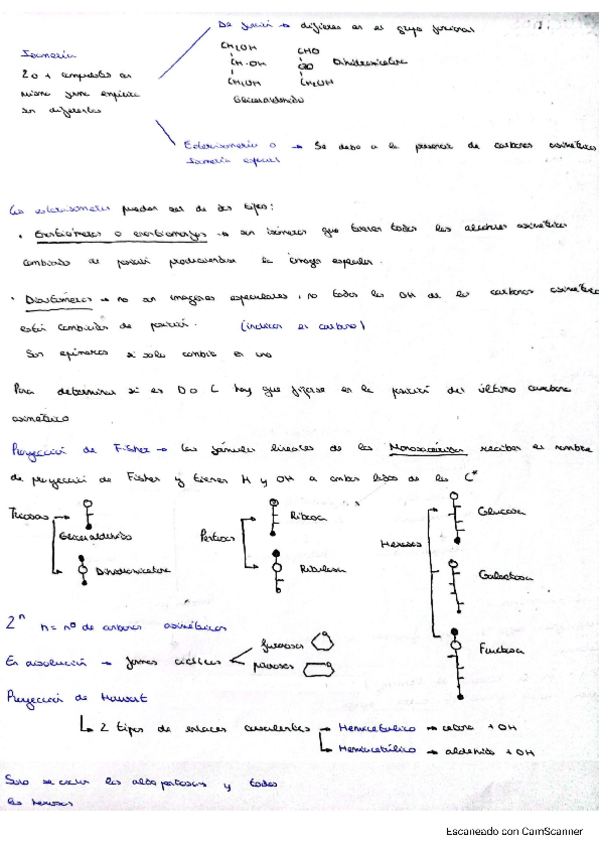 De función → difieren en el grupo funcional
Isomería
2 o + compuestos con
misma forma empírica
son diferentes
CH2OH CHO
CH-OH CO Dihidroxiacetona
CH2OH CH2OH
Gliceraldehído
Estereoisomería o → Se debe a la presencia de carbonos asimétricos
isomería espacial
Los estereoisómeros pueden ser de dos tipos:
• Enantiómeros o enantiomorfos → son isómeros que tienen todos los alcoholes asimétricos
cambiados de posición produciéndose la imagen especular.
• Diastómeros → no son imágenes especulares, no todos los OH de los carbonos asimétricos
están cambiados de posición. (indicar el carbono)
Son epímeros si solo cambia en uno
Para determinar si es D o L hay que fijarse en la posición del último carbono
asimétrico
Proyección de Fisher → Las fórmulas lineales de los Monosacáridos reciben el nombre
de proyección de Fisher y tienen H y OH a ambos lados de los C*
Triosas Gliceraldehído
Dihidroxiacetona
Pentosas Ribosa
Ribulosa
Hexosas Glucosa
Galactosa
Fructosa
2ⁿ n = nº de carbonos asimétricos
En disolución → formas cíclicas
furanosas
piranosas
Proyección de Hawort
2 tipos de enlaces covalentes → Hemicetálico → cetona + OH
→ Hemiacetálico → aldehído + OH
Solo se ciclan las aldopentosas y todas
las hexosas
Escaneado con CamScanner